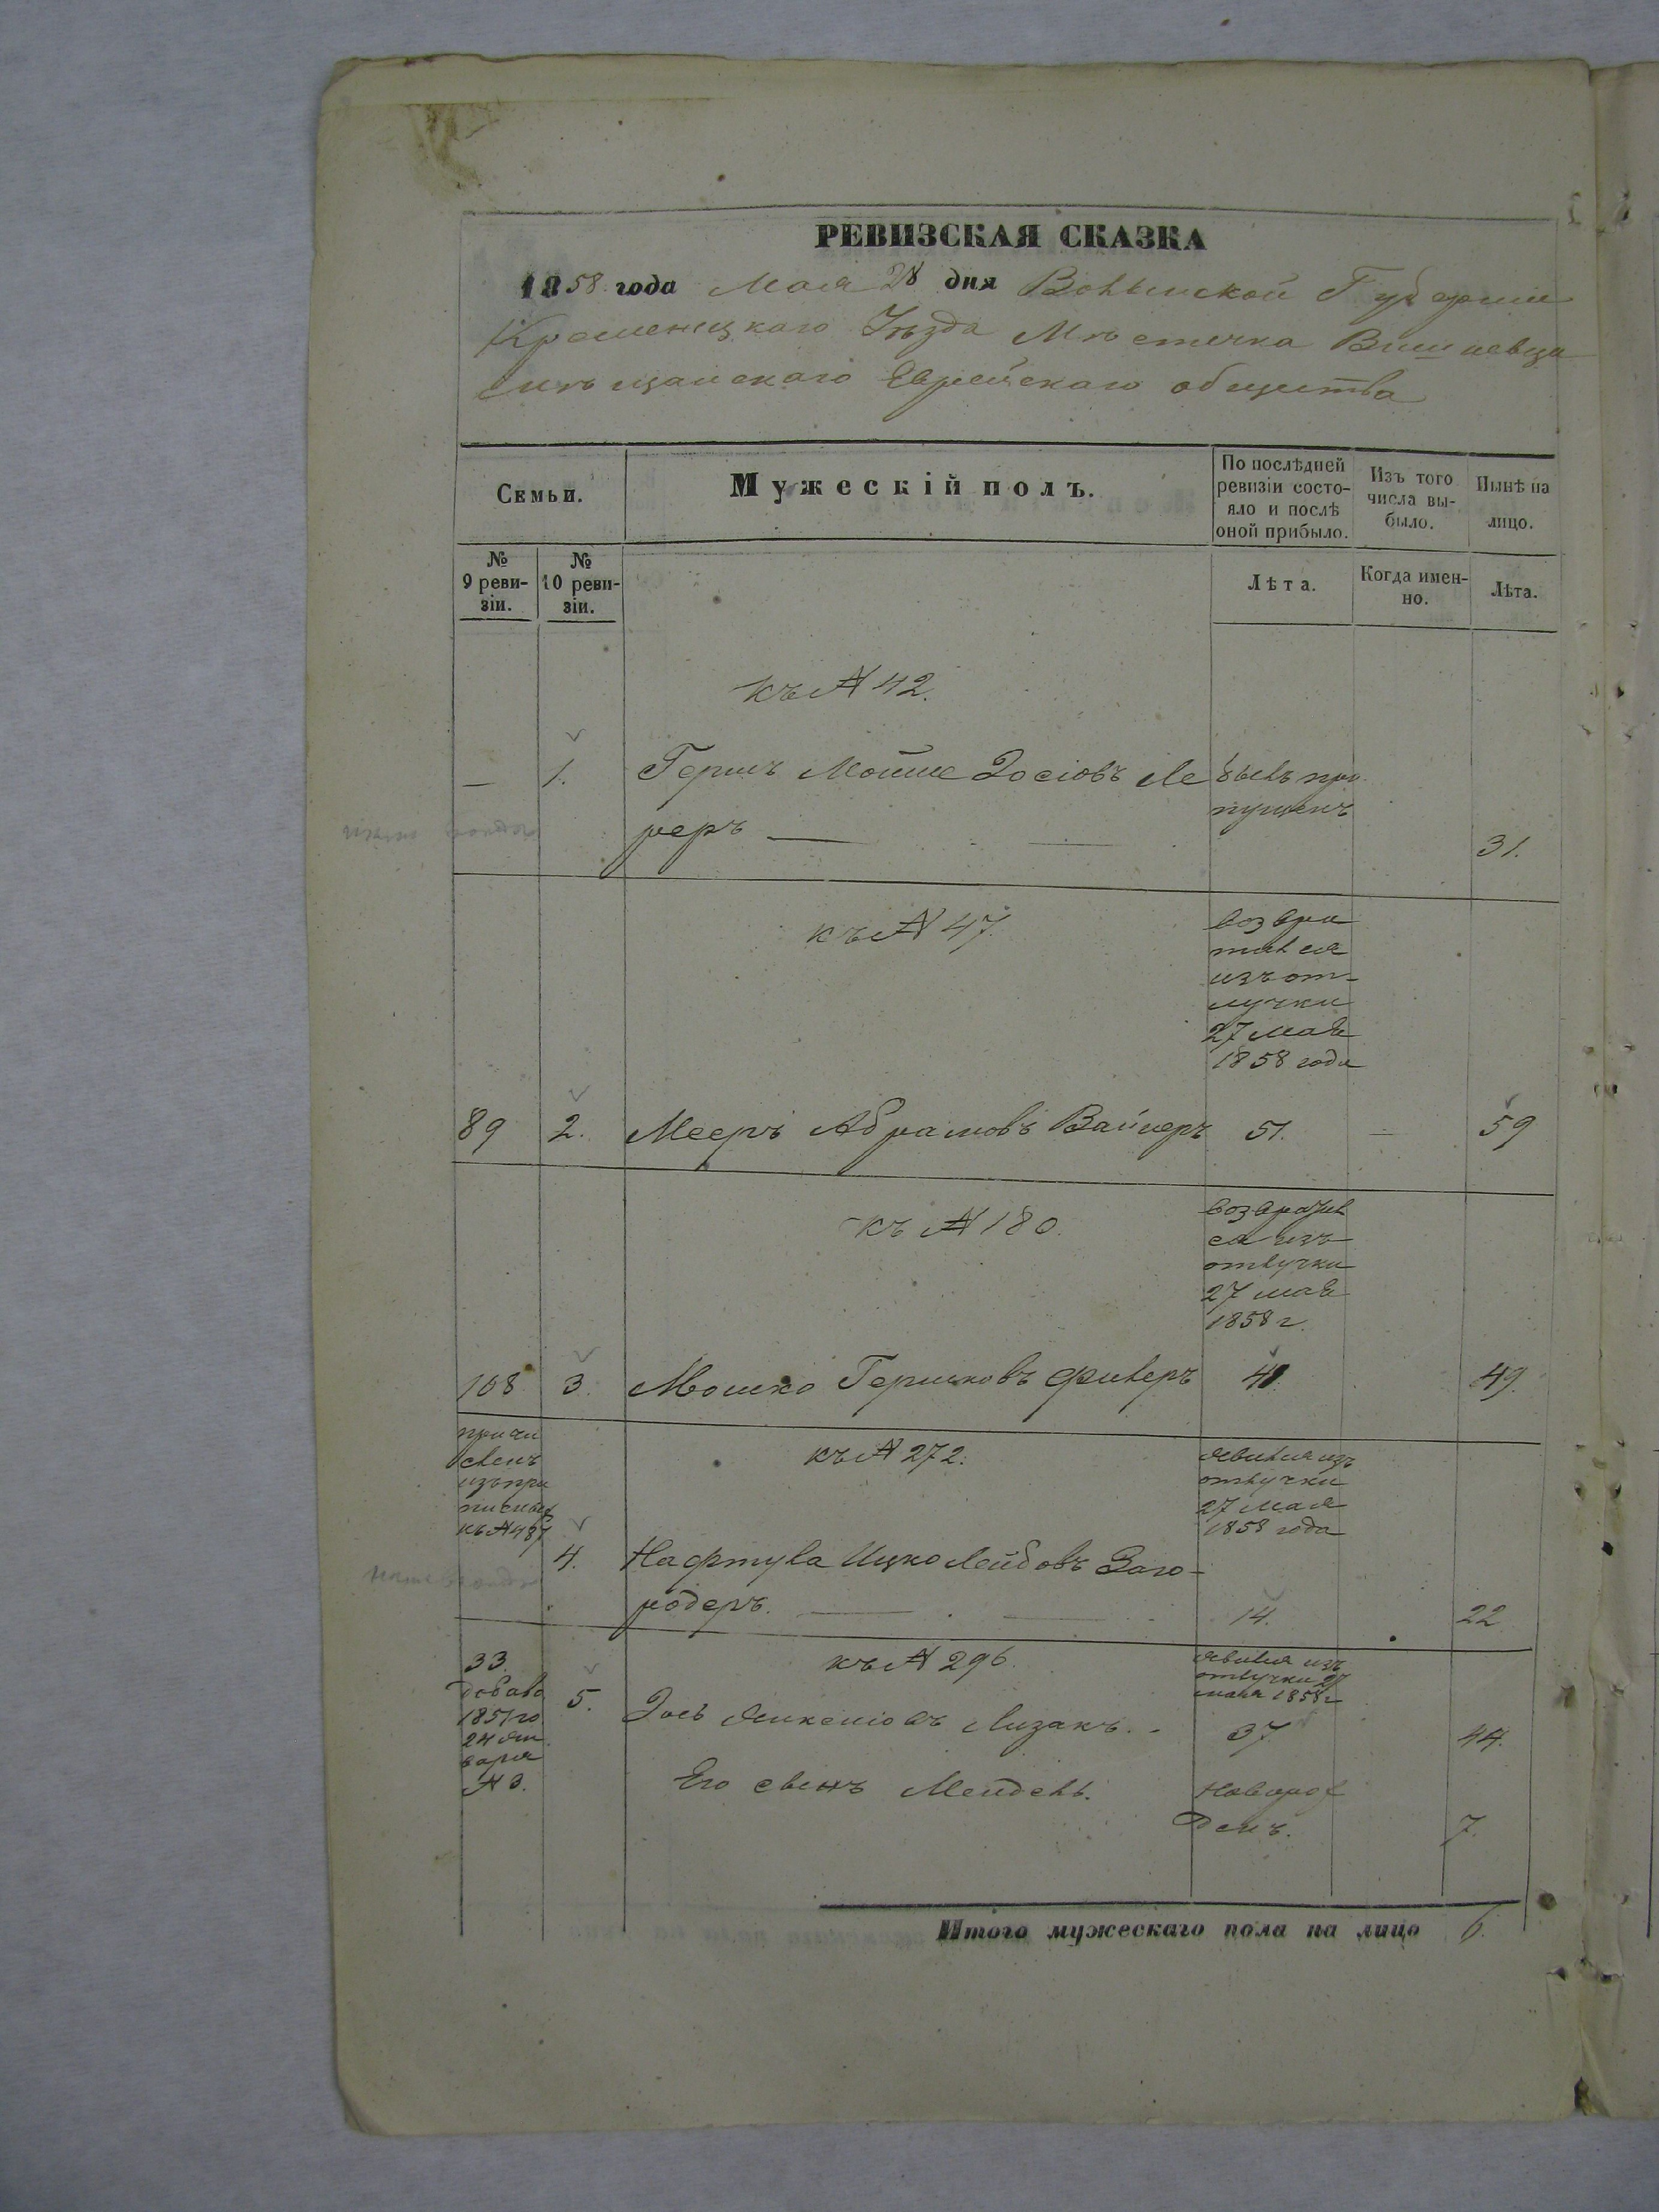 РЕВИЗСКАЯ СКАЗКА
1858 года Мая 28 дня Волынской Губернии
Кременецкаго Уѣзда Мѣстечка Вишневца
мѣщанскаго Еврейскаго общества
Семьи.
Мужескій полъ.
По послѣдней
ревизіи состо-
яло и послѣ
оной прибыло.
Изъ того
числа вы-
было.
Нынѣ на
лицо.
№
9 реви-
зіи.
№
10 реви-
зіи.
Лѣта.
Когда имен-
но.
Лѣта.
къ № 42.
— 1. Гершъ Мошие Іосіовъ Ле былъ про
реръ — пущенъ
31.
къ № 47.
возвра
тился
изъ от-
лучки
27 мая
1858 года
89 2. Мееръ Абрамовъ Вайнеръ 51. — 59
къ № 180.
возратил
ся изъ
отлучки
27 мая
1858 г.
108 3. Мошко Гершковъ Филеръ 41. 49.
причи
сленъ
изъ при
писных
къ № 487
къ № 272.
явился изъ
отлучки
27 мая
1858 года
4. Нафтула Ицко Лейбовъ Заго-
родеръ. 14. 22
33.
добав
1851 го
24 Ян
варя
№ 3.
къ № 296.
явился изъ
отлучки 27
мая 1858 г
5. Іось Янкеліовъ Лизакъ. 37 44.
Его сынъ Мендель. Новорож
денъ. 7.
Итого мужескаго пола на лицо 6.